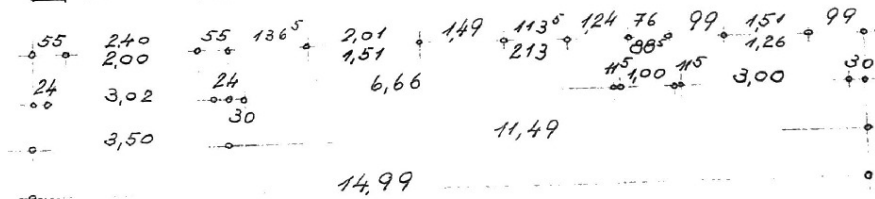 55 2,40 55 136⁵ 2,01 1,49 113⁵ 1,24 76 99 1,51 99
2,00 1,51 213 88⁵ 1,26
24 3,02 24 6,66 11⁵ 1,00 11⁵ 3,00 30
30
3,50 11,49
14,99